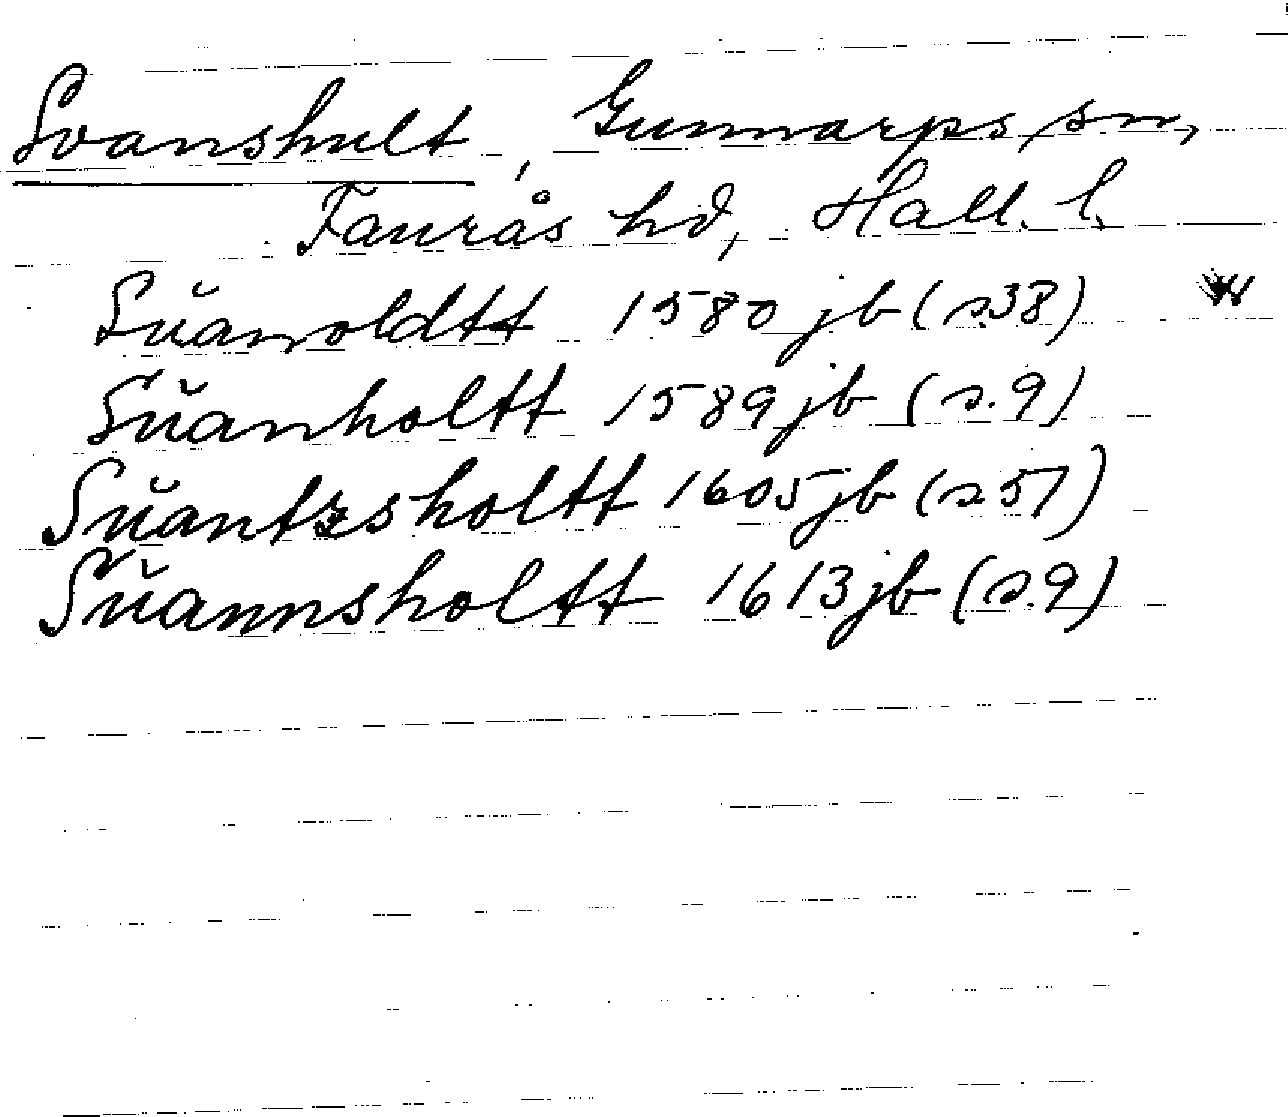 Svanshult, Gunnarps sn,
Faurås hd, Hall. l.
Sŭanoldtt 1580 jb (s.38)
Sŭanholtt 1589 jb (s.9)
Sŭantzsholtt 1605 jb (s 57)
Sŭannsholtt 1613 jb (s.9)